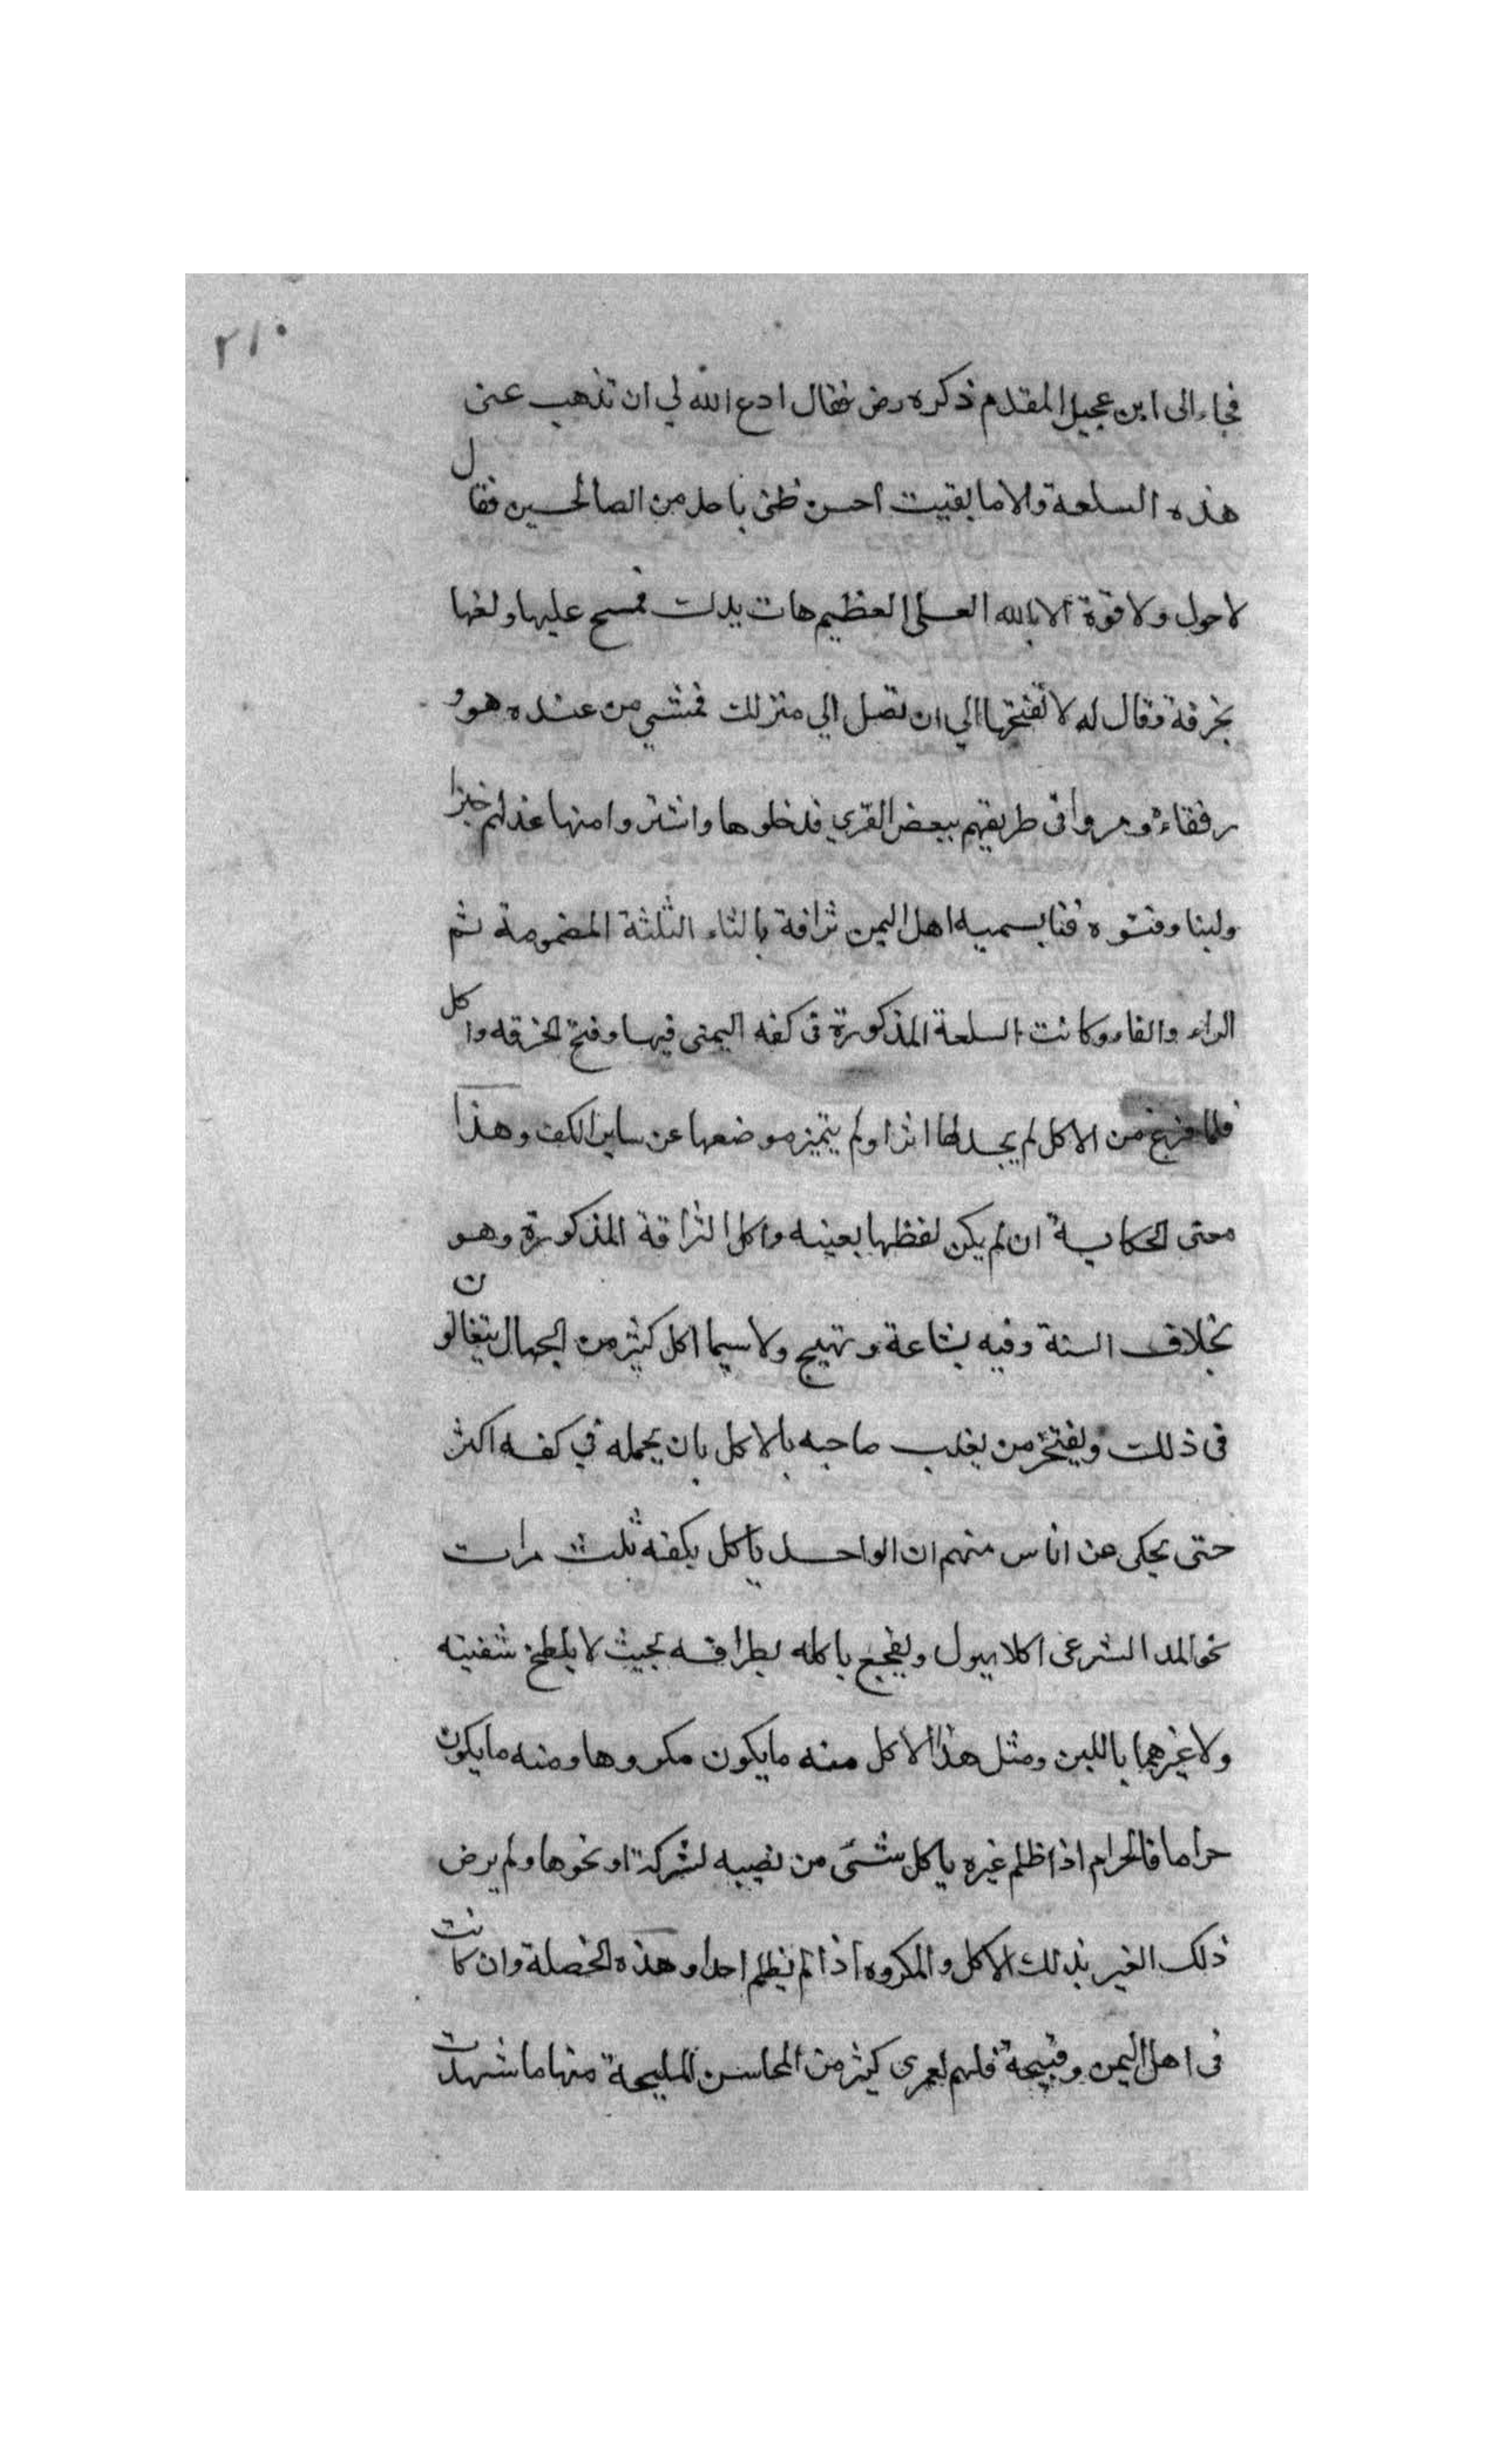 ٢١٠
فجاء الى ابن عجيل المقدم ذكره رض فقال ادع الله لي ان تذهب عنى
هذه السلعة والا ما بقيت احسن ظنى باحد من الصالحين فقال
لا حول ولا قوة الا بالله العلى العظيم هات يدك فمسح عليها ولفها
بخرقة وقال له لا تفتحها الي ان تصل الي منزلك فمشي من عنده هو و
رفقاءه ومروا فى طريقهم ببعض القري فدخلوها واشتروا منها غداءهم خبزا
ولبنا وفتوه فتا يسميه اهل اليمن ثرافة بالثاء الثلثة المضمومة ثم
الراء والفاء وكانت السلعة المذكورة فى كفه اليمنى فيها وفتح الخرقه واكل
فلما فرغ من الاكل لم يجد لها اثرا ولم يتميز موضعها عن ساير الكف وهذا
معنى الحكاية ان لم يكن لفظها بعينه واكل الثرافة المذكورة وهو
بخلاف السنة وفيه بشاعة وتهيج ولا سيما اكل كثير من الجهال يتغالون
فى ذلك ويفتخر من يغلب صاحبه بالاكل بان يحمله في كفه اكثر
حتى يحكى عن اناس منهم ان الواحد ياكل بكفه ثلث مرات
نحو المد الشرعى اكلا يهول ياكله بحيث لا يلطخ شفتيه
ولا غيرهما باللبن ومثل هذا الاكل منه ما يكون مكروها ومنه ما يكون
حراما فالحرام اذا ظلم غيره ياكل شئ من نصيبه لشركة او نحوها ولم يرض
ذلك الغير بذلك الاكل والمكروه اذا لم يظلم احدا وهذه الخصلة وان كانت
فى اهل اليمن وقبيحة فلهم لعمرى كثير من المحاسن المليحة منها ما شهدت